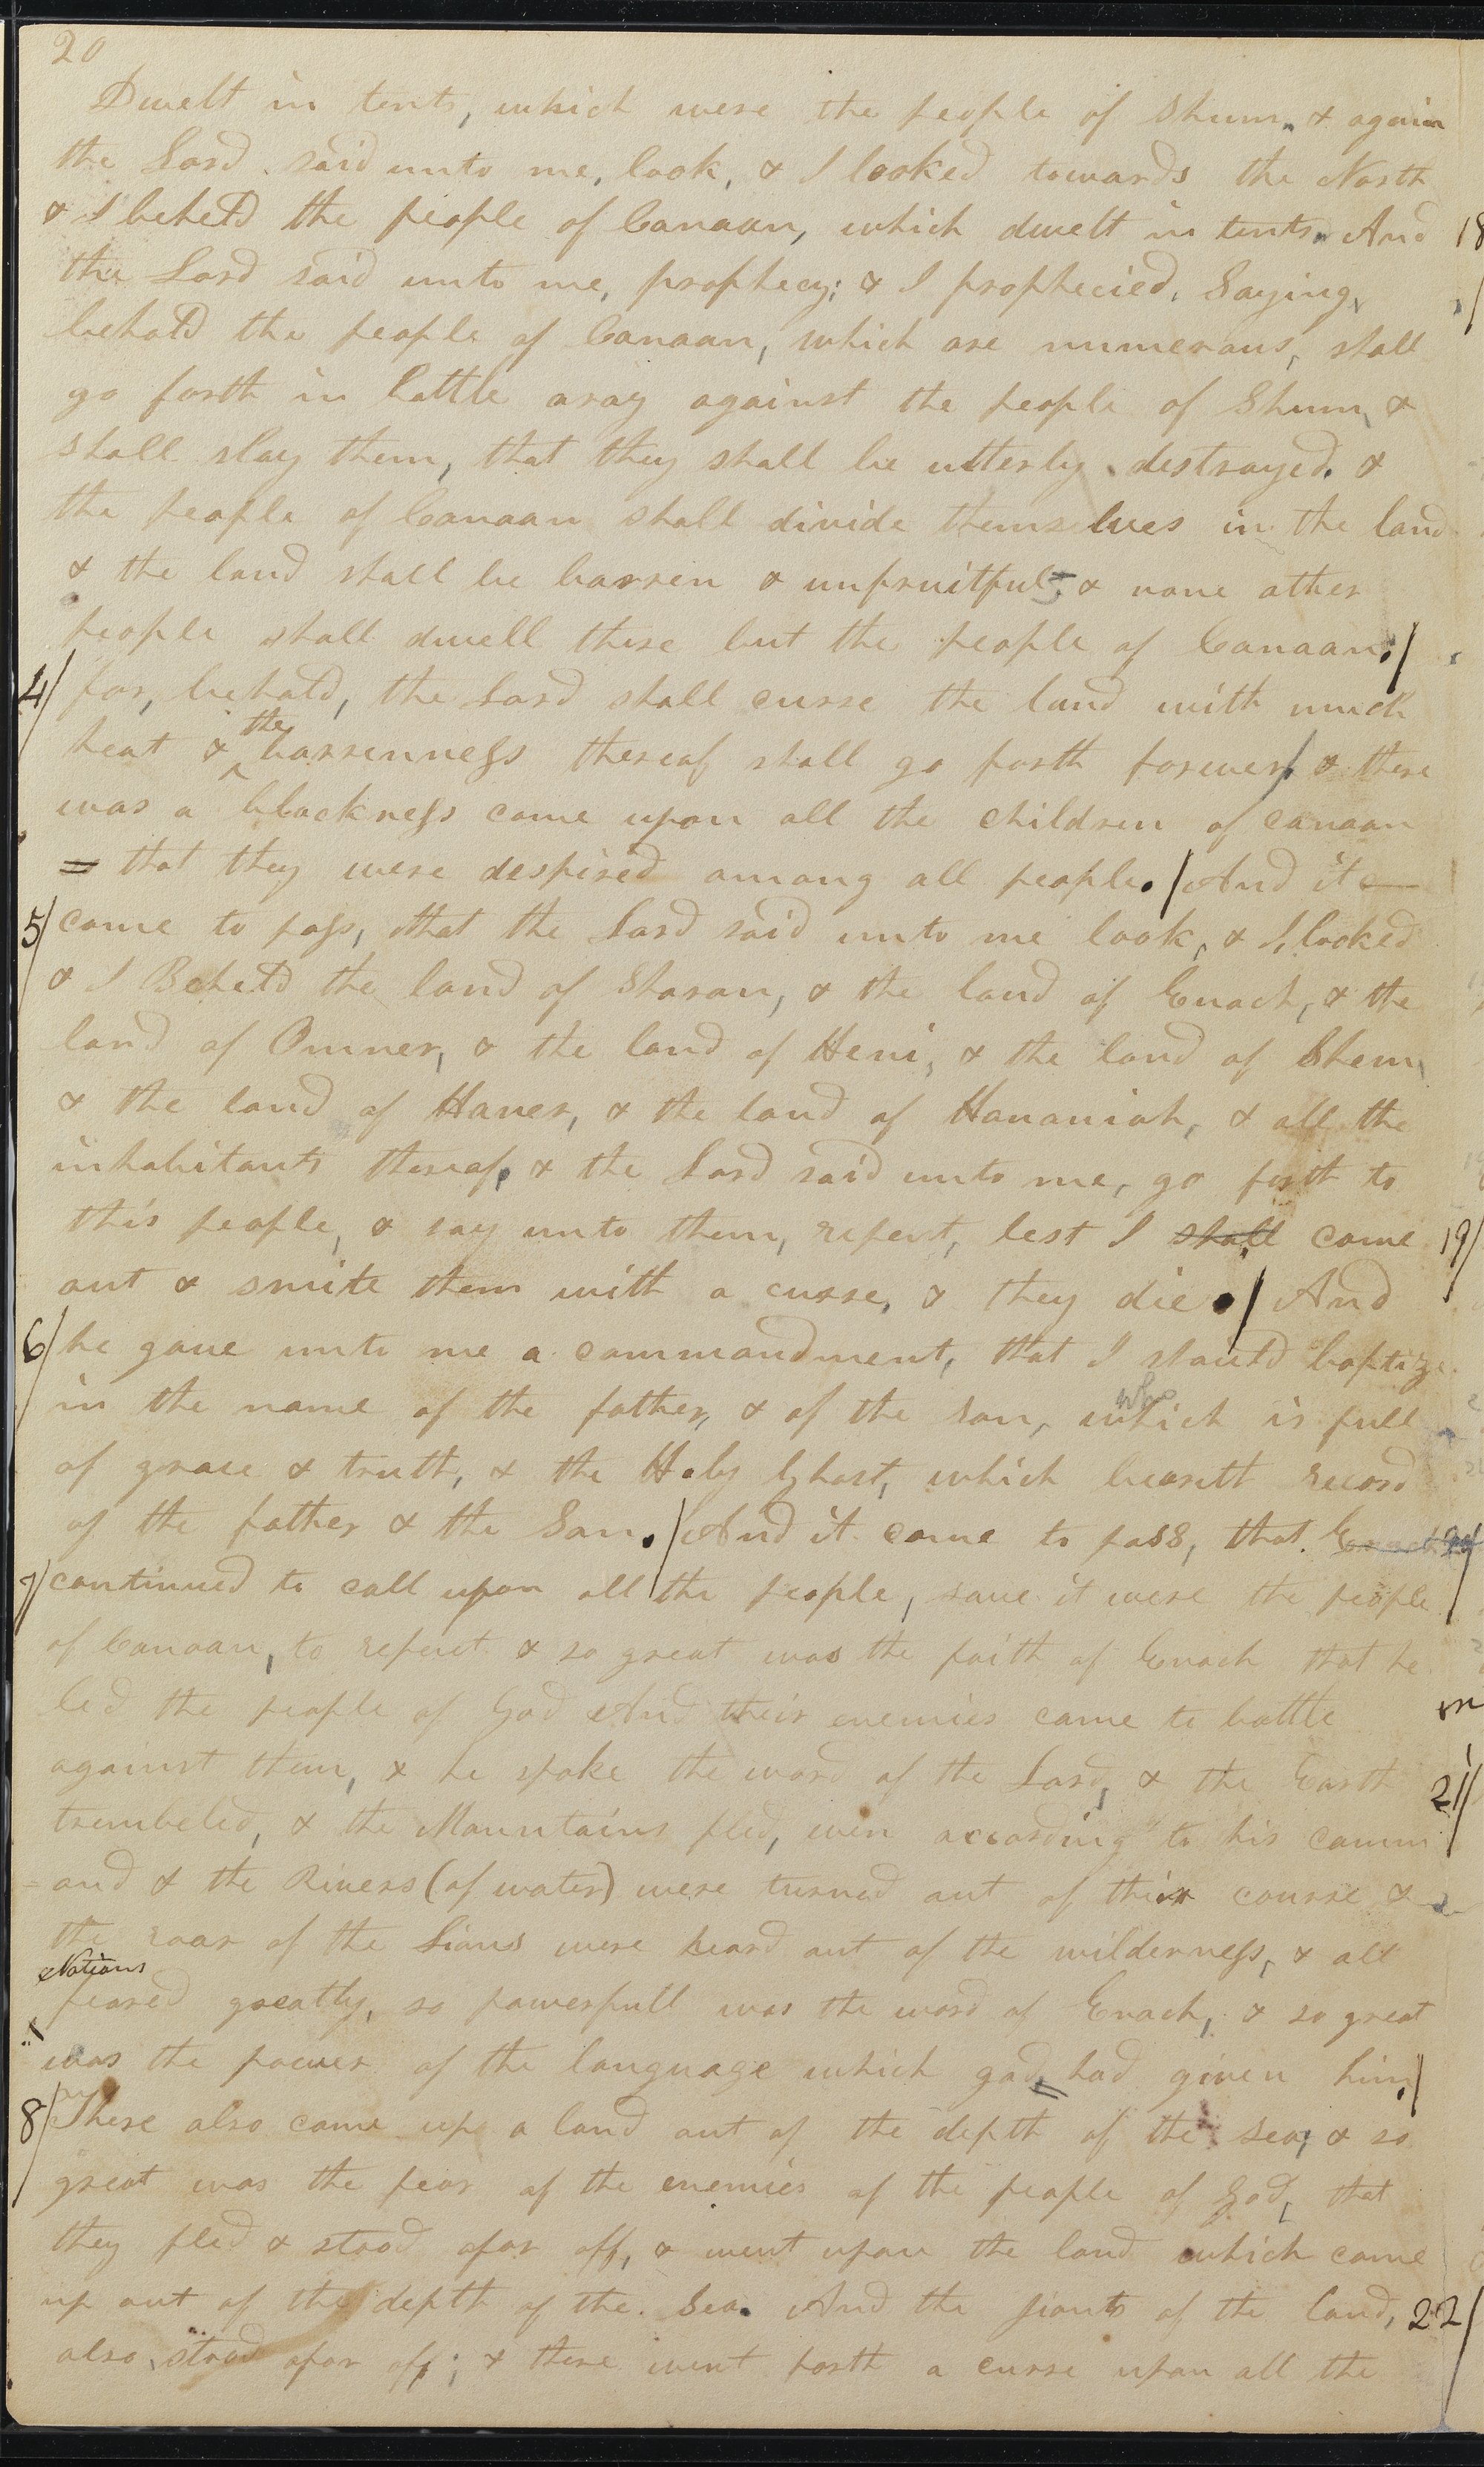 20
Dwelt in tents, which were the people of Shum. & again
the Lord said unto me, look, & I looked towards the North
& I beheld the people of Canaan, which dwelt in tents. And 18
the Lord said unto me, prophecy; & I prophecied, Saying,
behold the people of Canaan, which are numerous, shall
go forth in battle aray against the people of Shum, &
shall slay them, that they shall be utterly destroyed. &
the people of Canaan shall divide themselves in the land
& the land shall be barren & unfruitful; & none other
people shall dwell there but the people of Canaan;/
4/ for, behold, the Lord shall curse the land with much
heat & the barrenness thereof shall go forth forever/ & there
was a blackness come upon all the children of canaan
= that they were despised among all people./ And it
5/ came to pass, that the Lord said unto me look, & I looked
& I Beheld the land of Sharon, & the land of Enoch, & the
land of Omner, & the land of Heni, & the land of Shem,
& the land of Haner, & the land of Hananiah, & all the
inhabitants thereof, & the Lord said unto me, go forth to
this people, & say unto them, repent, lest I shall come 19/
out & smite them with a curse, & they die./ And
6/ he gave unto me a commandment, that I should baptize
in the name of the father, & of the son, which who is full
of grace & truth, & the Holy Ghost, which beareth record
of the father & the Son./ And it came to pass, that Enoch
7/ continued to call upon all the people, save it were the people
of Canaan, to repent & so great was the faith of Enoch that he
led the people of God And their enemies came to battle
against them, & he spake the word of the Lord, & the Earth 21/
trembeled, & the Mountains fled, even according to his comm
=and & the Rivers (of water) were turned out of their course &
the roar of the Lions were heard out of the wilderness, & all
Nations
feared greatly, so powerfull was the word of Enoch, & so great
was the power of the language which god had given him/
8/ There also came up a land out of the depth of the sea, & so
great was the fear of the enemies of the people of God, that
they fled & stood afar off, & went upon the land which came
up out of the depth of the Sea. And the giants of the land, 22/
also, stood afar off; & there went forth a curse upon all the